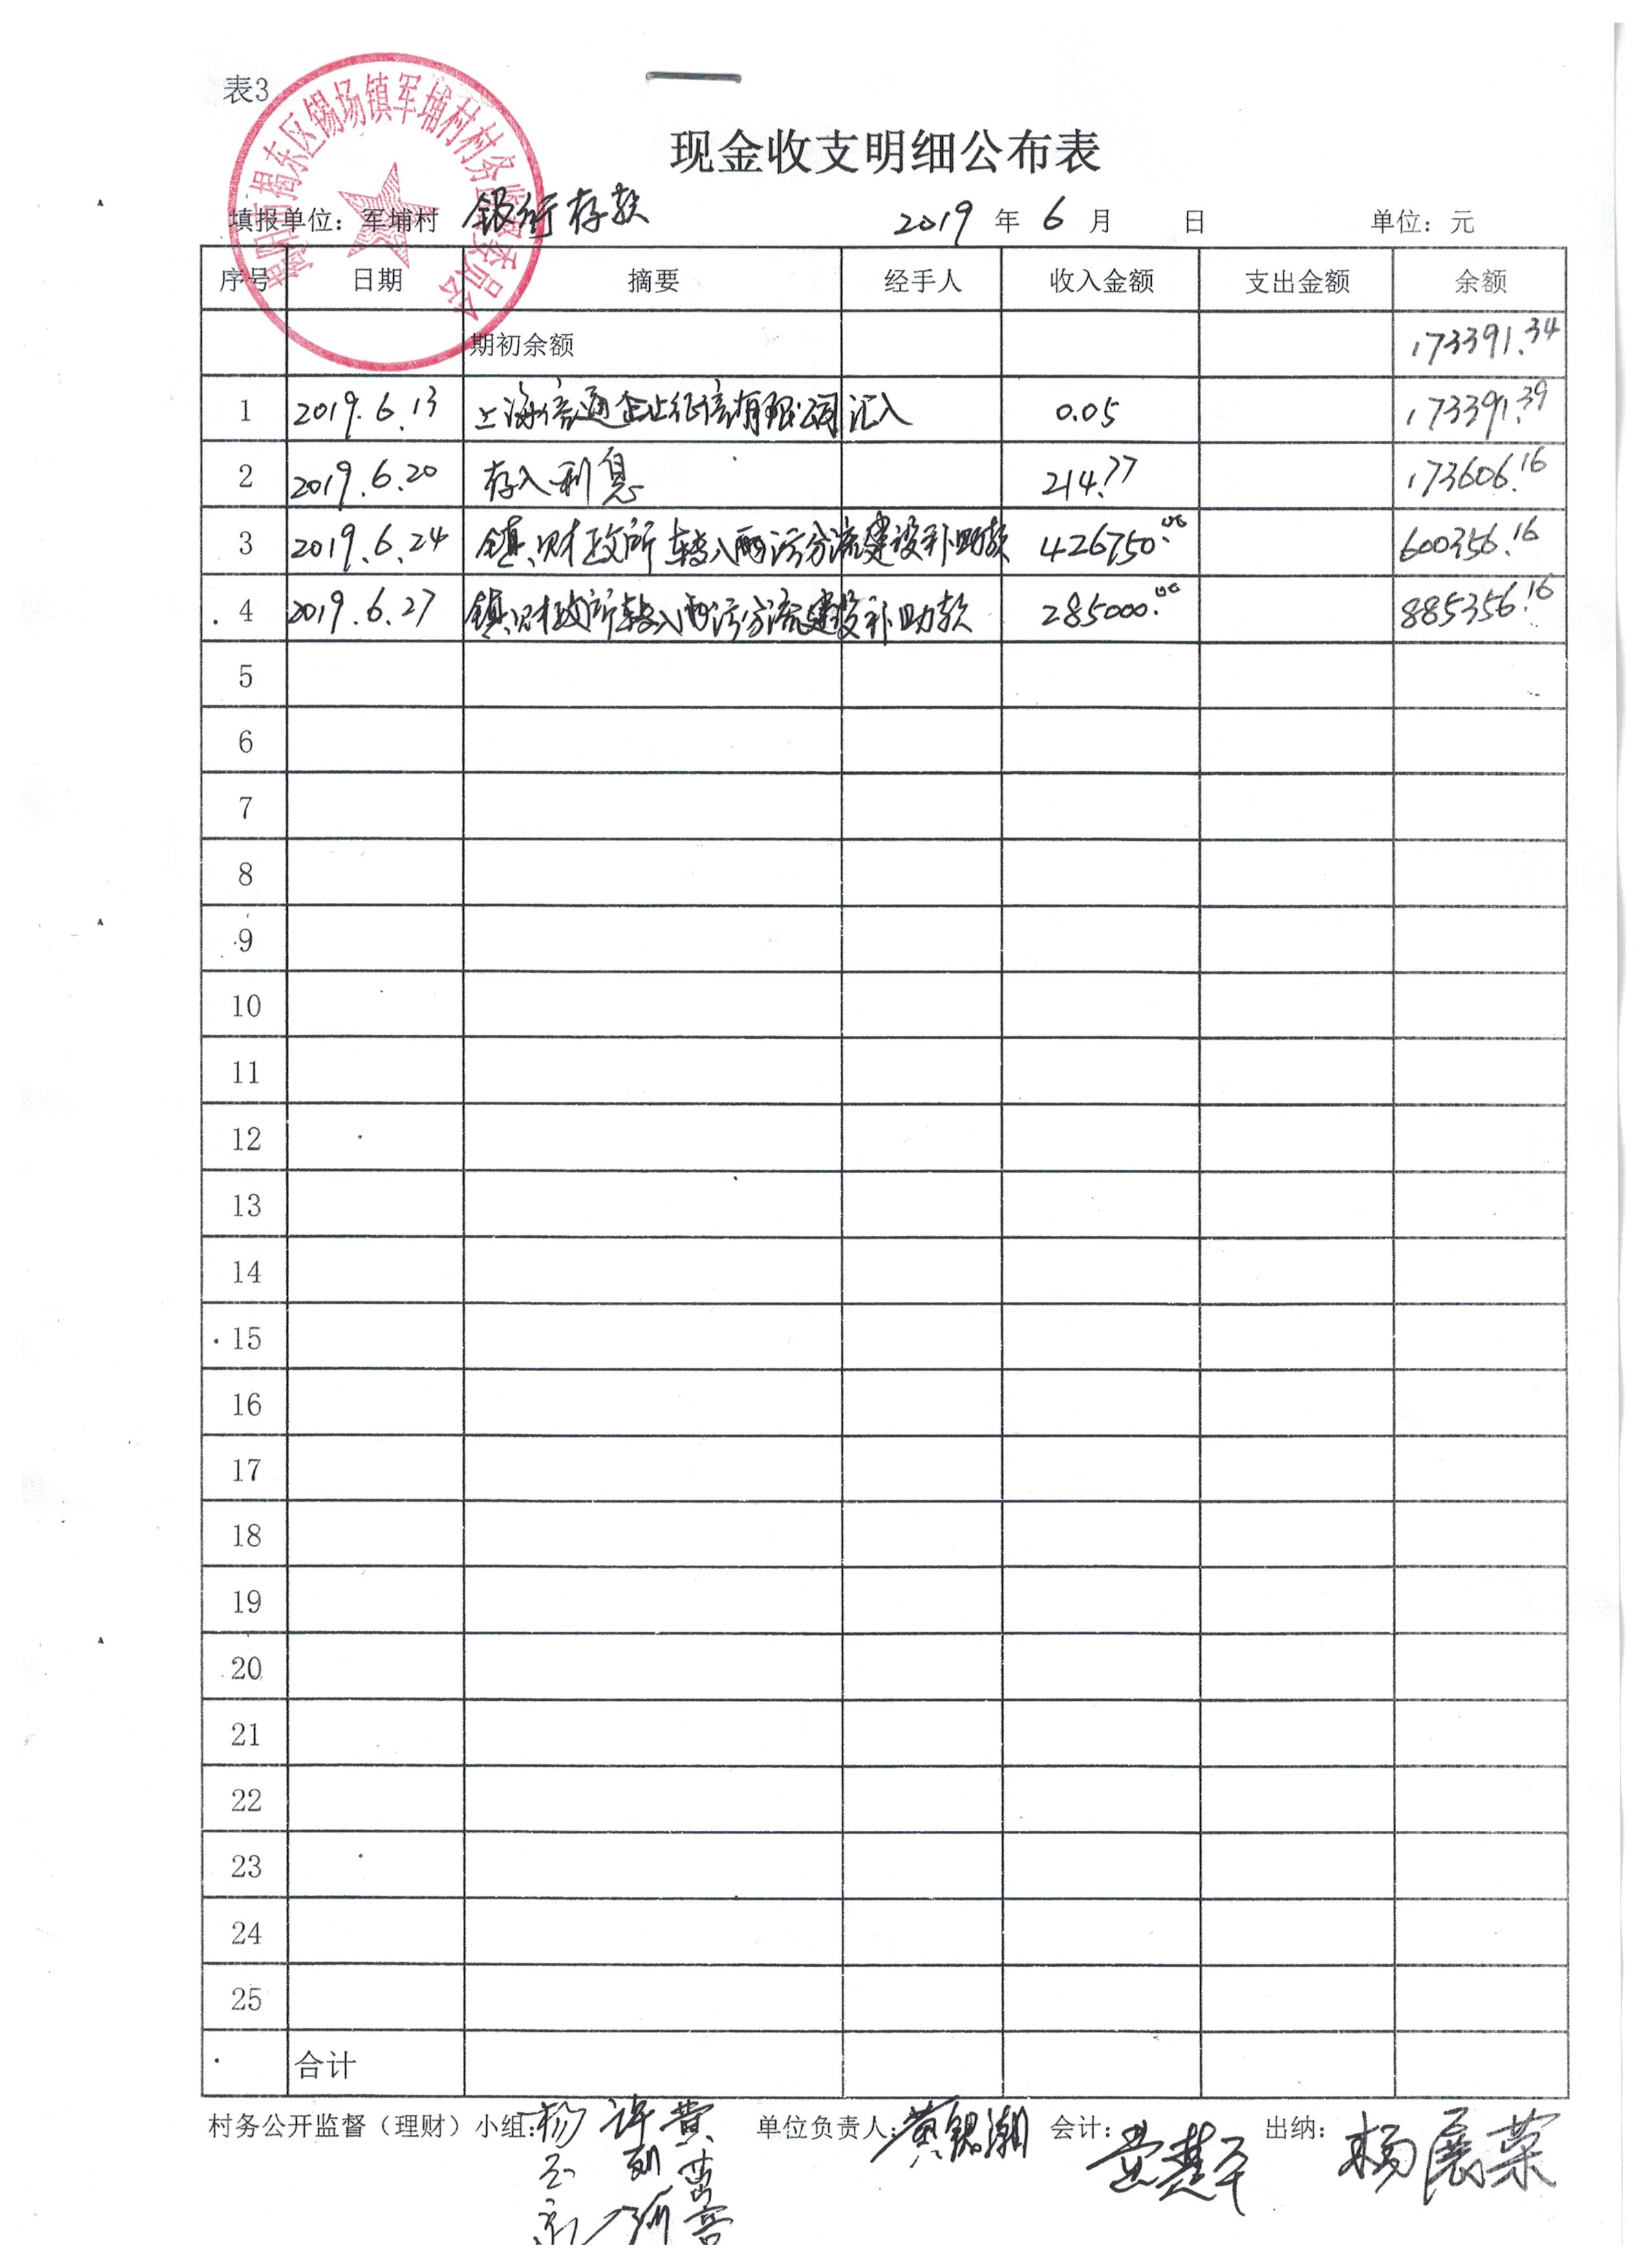 表3
揭阳市揭东区锡场镇军埔村村务监督委员会
现金收支明细公布表
填报单位：军埔村 银行存款 2019 年 6 月 日 单位：元
序号 日期 摘要 经手人 收入金额 支出金额 余额
期初余额 173391.34
1 2019.6.13 上海倍通企业征信有限公司汇入 0.05 173391.39
2 2019.6.20 存入利息 214.77 173606.16
3 2019.6.24 镇财政所转入雨污分流建设补助款 426750.00 600356.16
4 2019.6.27 镇财政所转入雨污分流建设补助款 285000.00 885356.16
5
6
7
8
9
10
11
12
13
14
15
16
17
18
19
20
21
22
23
24
25
合计
村务公开监督（理财）小组： 杨 许 黄 单位负责人：黄锡潮 会计： 出纳：杨展荣